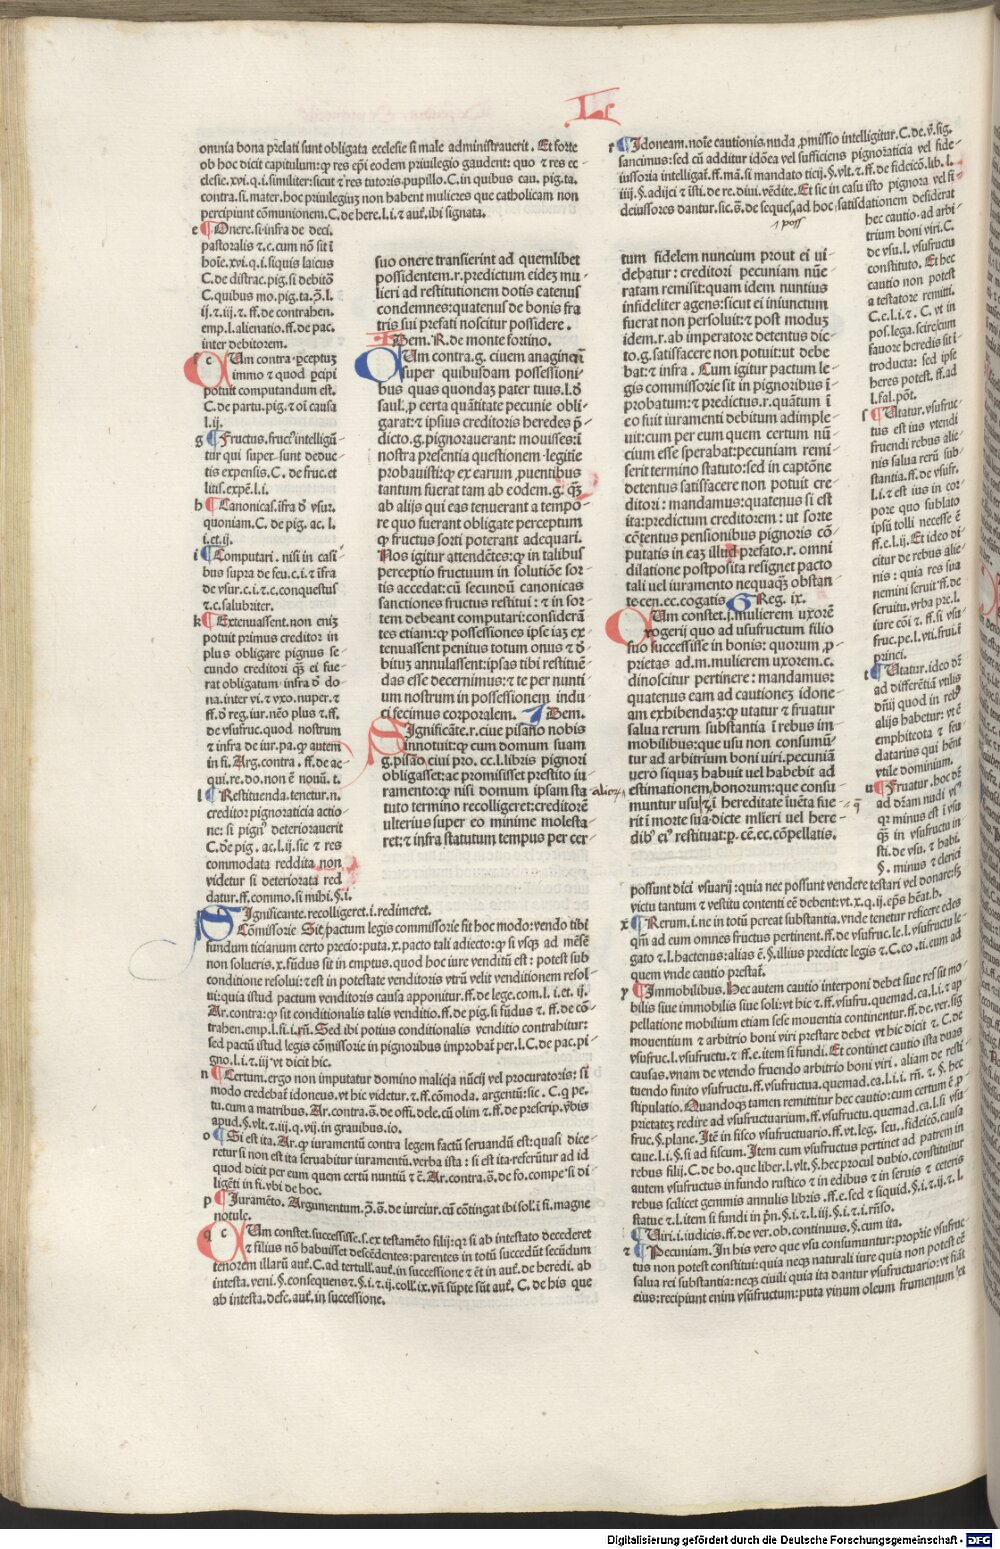 L
omnia bona p̄elati sunt obligata ecclesie si male administrauerit. Et forte
ob hoc dicit capitulum: ꝙ res ep̄i eodem priuilegio gaudent: quo ⁊ res ec-
clesie.xvi.q.i.similiter: sicut ⁊ res tutoris pupillo.C.in quibus cau. pig.ta.
contra.si.mater. hoc priuilegiuꝫ non habent mulieres que catholicam non
percipiunt cōmunionem.C.de here.l.i.⁊ aut̄.ibi signata.
e ¶ Onere.si.infra de deci.
pastoralis ⁊.c.cum nō sit ī
hoīe.xvi.q.i.siquis laicus
C.de distrac.pig.si debitō
C.quibus mo.pig.ta.
ij.⁊.iij.⁊.ff.de contrahen.
emp.l.alienatio.ff.de pac.
inter debitorem.
c Um contra.perceptuꝫ
immo ⁊ quod percipi
potuit computandum est.
C.de partu.pig.⁊ oī causa
l.ij.
g ¶ Fructus.fruct intelligū-
tur qui super sunt deduc-
tis expensis. C.de fruc.et
litis.expē.l.i.
h ¶ Canonicas.īfra d̄ vsur.
quoniam.C. de pig. ac. l.
i.et.ij.
i ¶ Computari. nisi in casi-
bus supra de feu.c.i.⁊ īfra
de vsur.c.i.⁊.c.conquestus
⁊.c.salubriter.
k ¶ Extenuassent.non eniꝫ
potuit primus creditor in
plus obligare pignus se-
cundo creditori ꝙ̄ ei fue-
rat obligatum infra d̄ do-
na.inter vi.⁊ vxo.nuper.⁊
ff.d̄ reg.iur.nēo plus ⁊.ff.
de vsufruc.quod nostrum
⁊ infra de iur.pa.ꝙ autem
in fi. Arg.contra. ff.de ac-
qui.re.do.non ē nouū.
l ¶ Restituenda.tenetur.n.
creditor pignoraticia actio-
ne: si pign deteriorauerit
C.de pig. ac.l.ij.sic ⁊ res
commodata reddita non
videtur si deteriorata red
datur.ff.commo.si mihi.§.i.
Significante.recolligeret.i.redimeret.
Comissorie. Sit pactum legis commissorie sit hoc modo: vendo tibi
fundum ticianum certo precio: puta.x.pacto tali adiecto: ꝙ si vsqꝫ ad mēsē
non solueris.x.fūdus sit in emptus.quod hoc iure venditū est: potest sub
conditione resolui: ⁊ est in potestate venditoris vtrū velit venditionem resol-
ui: quia istud pactum venditoris causa apponitur.ff.de lege.com.l. i.et. ij.
Ar.contra: ꝙ sit conditionalis talis venditio. ff.de pig.si fūdus ⁊. ff.de cō-
trahen.emp.l.fi. Sed ibi potius conditionalis venditio contrahitur:
sed pactū istud legis cōmissorie in pignoribus improbat̄ per.l.C.de pac.pi-
gno.l.i.⁊.ij vt dicit hic.
n ¶ Certum.ergo non imputatur domino malicia nūcij vel procuratoris: si
modo credebat̄ idoneus.vt hic videtur.⁊.ff.cōmoda. argentū: sic.
tu.cum a matribus. Ar.contra.s̄.de offi.dele.cū olim ⁊.ff.de prescrip.vbis
apud.§.vlt.⁊.iij.q.vij.in grauibus.io.
o ¶ Si est ita.Ar.ꝙ iuramentū contra legem factū seruandū est: quasi dice-
ret: si non est ita seruabitur iuramentū.verba ista: si est ita referūtur ad id
quod dicit per eum quem certū nuntiū ⁊ c̄. Ar.contra.s̄.de fo.compe si di-
ligēti in fi.vbi de hoc.
p ¶ Iuramēto. Argumentum. s̄.de iureiur.cū cōtingat ibi sol. i fi.magne
notule.
q c Um constet.successisse.s.ex testamēto filij: ꝙ si ab intestato decederet
⁊ filius nō habuisset descēdentes: parentes in totū succedūt secūdum
tenorem illarū aut̄.C.ad tertull.aut̄.in successione ⁊ ēt in aut̄.de heredi. ab
intesta.veni.§.consequens ⁊.§.i.⁊.ij.coll.ix.vn̄ sūpte sūt aut̄. C. de his que
ab intesta.defe.aut̄.in successione.
suo onere transierint ad quemlibet
possidentem.r.predictum eidez mu-
lieri ad restitutionem dotis eatenus
condemnes: quatenus de bonis fra
tris sui prefati noscitur possidere.
Idem. R. de monte fortino.
CUm contra.g.ciuem anagninū
super quibusdam possessioni
bus quas quondaꝫ pater tuus.l.d̄
saul.ꝓ certa quātitate pecunie obli-
garat: ⁊ ipsius creditoris heredes p̄-
dicto.g.pignorauerant: mouisses: ī
nostra presentia questionem legitie
probauisti: ꝙ ex earum ꝓuentibus
tantum fuerat tam ab eodem.g. ꝙ̄
ab alijs qui eas tenuerant a tempo-
re quo fuerant obligate perceptum
ꝙ fructus sorti poterant adequari.
Nos igitur attendētes: ꝙ in talibus
perceptio fructuum in solutiōe sor-
tis accedat: cū secundū canonicas
sanctiones fructus restitui: ⁊ in sor-
tem debeant computari: considerā
tes etiam: ꝙ possessiones ipse iaꝫ ex-
tenuassent penitus totum onus ⁊ d̄-
bituꝫ annulassent: ipsas tibi restituē-
das esse decernimus: ⁊ te per nunti-
um nostrum in possessionem indu-
ci fecimus corporalem. Idem.
SIgnificāte.r.ciue pisano nobis
innotuit: ꝙ cum domum suam
g.pisāo ciui pro. cc.l.libris pignori
obligasset: ac promisisset prestito iu-
ramento: ꝙ nisi domum ipsam sta
tuto termino recolligeret: creditorē
ulterius super eo minime molesta-
ret: ⁊ infra statutum tempus per cer
r ¶ Idoneam.noīe cautionis nuda ꝓmissio intelligitur.C.de.v̄.sig.
sancimus: sed cū additur idōea vel sufficiens pignoraticia vel fide-
iussoria intelligat̄.ff.mā.si mandato ticij.§.vlt.⁊.ff.de fideicō.lib.l.
iiij.§.adijci ⁊ īsti.de re.diui.vēdite. Et sic in casu isto pignora vel fi-
deiussores dantur.sic.s̄.de seques, ad hoc satisdationem desiderat
poss
hec cautio ad arbi-
trium boni viri.C.
de vsu.l. vsufructu
constituto. Et hec
cautio non potest
a testatore remitti.
C.e.l.i.⁊. C. vt in
pos.lega.scire: cum
fauore heredis sit ī-
troducta: sed ipse
heres potest. ff.ad
l.fal.pōt.
s ¶ Utatur.vsufruc-
tus est ius vtendi
fruendi rebus alie-
nis salua rerū sub-
stantia.ff.de vsufr.
l.i.⁊ est ius in cor-
pore quo sublato
ipsū tolli necesse ē
ff.e.l.ij. Et ideo di-
citur de rebus alie-
nis: quia res sua
nemini seruit ff.de
seruitu.vrba pre.l.
iure cōi ⁊. ff.si vsu
fruc.pe.l.vti.frui.ī
princi.
t ¶ Utatur.ideo dr̄
ad differētiā vtilis
dn̄ij quod in reb
alijs habetur: vt ē
emphiteota ⁊ feu
datarius qui hēnt
vtile dominium.
u ¶ Fruatur.hoc dr̄
ad dr̄am nudi vs
qr minus est ī vsu
ꝙ̄ in vsufructu in
sti.de vsu.⁊ habi.
§. minus ⁊ clerici
possunt dici vsuarij: quia nec possunt vendere testari vel donare: sꝫ
victu tantum ⁊ vestitu contenti cē debent: vt.x.q.ij.ep̄s hēat.h.
x ¶ Rerum.i.ne in totū pereat substantia.vnde tenetur reficere edes
qm̄ ad eum omnes fructus pertinent.ff.de vsufruc.le.l.vsufructu le-
gato ⁊.l.hactenus: alias ē.§.illius predicte legis ⁊.C.eo.ti.eum ad
quem vnde cautio prestat̄.
y ¶ Immobilibus. Hec autem cautio interponi debet siue res sit mo-
bilis siue immobilis siue soli: vt hic ⁊.ff.vsufru.quemad.ca.l.i.⁊ ap
pellatione mobilium etiam sese mouentia continentur.ff.de ver.sig
mouentium ⁊ arbitrio boni viri prestare debet vt hic dicit ⁊ C.de
vsufruc.l.vsufructu.⁊.ff.e.item si fundi. Et continet cautio ista duas
causas.vnam de vtendo fruendo arbitrio boni viri . aliam de resti-
tuendo finito vsufructu.ff.vsufructua.quemad.ca.l.i.⁊.§. hec
stipulatio. Quandoqꝫ tamen remittitur hec cautio: cum certum ē ꝓ-
prietatez redire ad vsufructuarium.ff.vsufructu.quemad.ca.l.si vsu
fruc.§.plane. Itē in fisco vsufructuario.ff.vt.leg. seu. fideicō.causa
caue.l.i.§.si ad fiscum. Item cum vsufructus pertinet ad patrem in
rebus filij. C.de bo.que liber.l.vlt.§.hec procul dubio.constituitur
autem vsufructus in fundo rustico ⁊ in edibus ⁊ in seruis ⁊ ceteris
rebus scilicet gemmis annulis libris .ff.e.sed ⁊ siquid.§.i.⁊.ij.⁊.l.
statue ⁊.l.item si fundi in p̄n.§.i.⁊.l.iij.§.i.⁊.i.rn̄so.
¶ Uiri.i.iudicis.ff.de ver.ob.continuus.§.cum ita.
z ¶ Pecuniam. In his vero que vsu consumuntur: proprie vsufruc-
tus non potest constitui: quia necꝫ naturali iure quia non potest cē
salua rei substantia: necꝫ ciuili quia ita dantur vsufructuario: vt fiāt
eius: recipiunt enim vsūfructum: puta vinum oleum frumentum et
tum fidelem nuncium prout ei vi-
debatur: creditori pecuniam nūe
ratam remisit: quam idem nuntius
infideliter agens: sicut ei iniunctum
fuerat non persoluit: ⁊ post moduꝫ
idem.r.ab imperatore detentus dic-
to.g.satisfacere non potuit: ut debe
bat: ⁊ infra . Cum igitur pactum le-
gis commissorie sit in pignoribus ī-
probatum: ⁊ predictus.r.quātum ī
eo fuit iuramenti debitum adimple-
uit: cum per eum quem certum nū-
cium esse sperabat: pecuniam remi-
serit termino statuto: sed in captōne
detentus satisfacere non potuit cre-
ditori: mandamus: quatenus si est
ita: predictum creditorem: ut sorte
cōtentus pensionibus pignoris cō-
putatis in eaꝫ illud prefato.r. omni
dilatione postposita resignet pacto
tali uel iuramento nequaꝙ̄ obstan-
te cen.ec.cogatis. Greg. ix.
CUm constet.j.mulierem uxorē
rogerij quo ad usufructum filio
suo successisse in bonis: quorum ꝓ-
prietas ad.m.mulierem uxorem.c.
dinoscitur pertinere: mandamus:
quatenus eam ad cautionez idone-
am exhibendaꝫ: ꝙ utatur ⁊ fruatur
salua rerum substantia ī rebus im-
mobilibus: que usu non consumū-
tur ad arbitrium boni uiri.pecuniā
uero siquaꝫ habuit uel habebit ad
alioꝝ estimationem bonorum: que consu-
muntur usu: ⁊ ī hereditate iuēta fue-
rit ī morte sua dicte mlieri uel here-
dib ei restituat: p. cē.ec.cōpellatis.
Digitalisierung gefördert durch die Deutsche Forschungsgemeinschaft - DFG